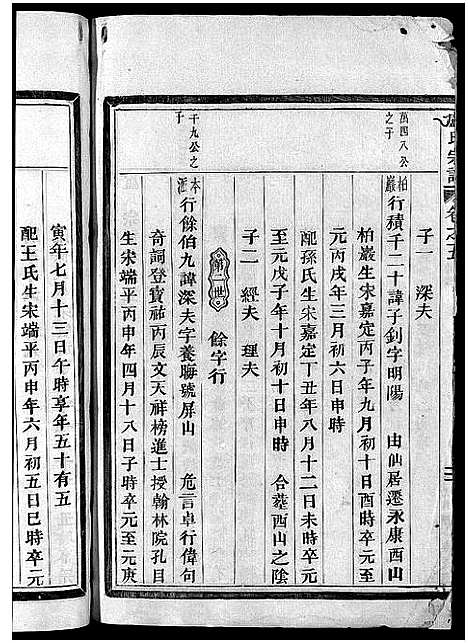 氏宗譜
子一　深夫
萬四八公之子
柏巖
行積千二十諱子釗字明陽　由仙居遷永康西山
柏巖生宋嘉定丙子年九月初十日酉時卒元至
元丙戌年三月初六日申時
配孫氏生宋嘉定丁丑年八月十二日未時卒元
至元戊子年十月初十日申時　合葬西山之陰
子二　經夫　理夫
第二世　餘字行
千九公之子
本派
行餘伯九諱深夫字養晦號屏山　危言卓行偉句
奇詞登寶祐丙辰文天祥榜進士授翰林院孔目
生宋端平丙申年四月十八日子時卒元至元庚
寅年七月十三日午時享年五十有五
配王氏生宋端平丙申年六月初五日巳時卒元